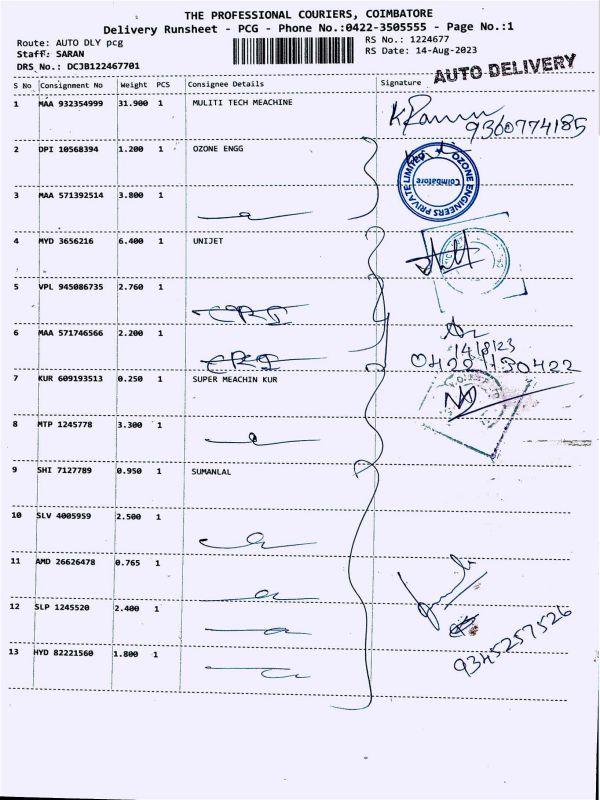 THE PROFESSIONAL COURIERS, COIMBATORE
Delivery Runsheet - PCG - Phone No.:0422-3505555 - Page No.:1
Route: AUTO DLY pcg
RS No.: 1224677
Staff: SARAN
RS Date: 14-Aug-2023
DRS No.: DCJB122467701
AUTO DELIVERY
S No Consignment No Weight PCS Consignee Details Signature
1 MAA 932354999 31.900 1 MULITI TECH MEACHINE
9360774185
2 DPI 10568394 1.200 1 OZONE ENGG
OZONE ENGINEERS PRIVATE LIMITED
Coimbatore
3 MAA 571392514 3.800 1
4 MYD 3656216 6.400 1 UNIJET
5 VPL 945086735 2.760 1
CRI
6 MAA 571746566 2.200 1
CRI
14/8/23
7 KUR 609193513 0.250 1 SUPER MEACHIN KUR
8 MTP 1245778 3.300 1
9 SHI 7127789 0.950 1 SUMANLAL
10 SLV 4005959 2.500 1
11 AMD 26626478 0.765 1
12 SLP 1245520 2.400 1
13 HYD 82221560 1.800 1
9345257526